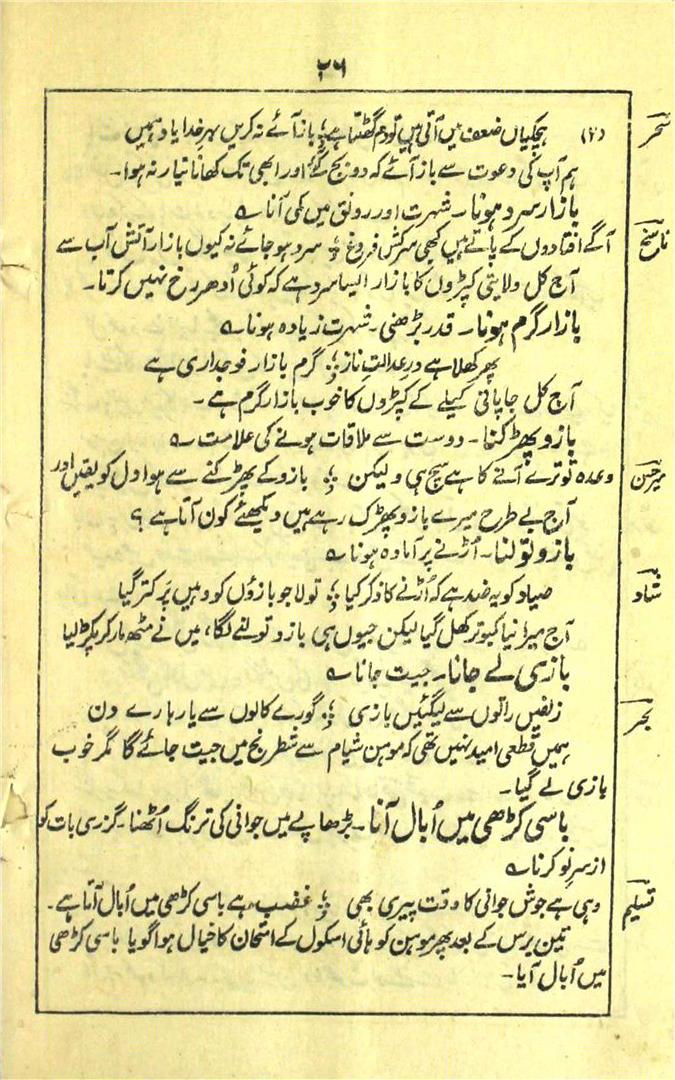 ۲۶
سحر (۲) ہچکیاں ضعف میں آتی ہیں تو دم گھٹتا ہے ؛ باز آئے نہ کریں بہرِ خدا یاد ہمیں
ہم آپ کی دعوت سے باز آئے کہ دو بج گئے اور ابھی تک کھانا تیار نہ ہوا۔
بازار سرد ہونا۔ شہرت اور رونق میں کمی آنا ؎
ناسخ آگے افتادوں کے پاتے ہیں کبھی سرکش فروغ ؛ سرد ہو جائے نہ کیوں بازار آتش آب سے
آج کل ولایتی کپڑوں کا بازار ایسا سرد ہے کہ کوئی اُدھر رخ نہیں کرتا۔
بازار گرم ہونا۔ قدر بڑھنی۔ شہرت زیادہ ہونا ؎
پھر کھلا ہے درِ عدالتِ ناز ؛ گرم بازار فوجداری ہے
آج کل جاپانی کیلے کے کپڑوں کا خوب بازار گرم ہے۔
بازو پھڑکنا۔ دوست سے ملاقات ہونے کی علامت ؎
میر حسن وعدہ تو ترے آنے کا ہے سچ ہی ولیکن ؛ بازو کے پھڑکنے سے ہوا دل کو یقیں اور
آج بے طرح میرے بازو پھڑک رہے ہیں دیکھئے کون آتا ہے ؟
بازو تولنا۔ اُڑنے پر آمادہ ہونا ؎
شاد صیاد کو یہ ضد ہے کہ اُڑنے کا ذکر کیا ؛ تولا جو بازوؤں کو وہیں پَر کتر گیا
آج میرا نیا کبوتر کھل گیا لیکن جیوں ہی بازو تولنے لگا، میں نے مٹھ مار کر پکڑ لیا
بازی لے جانا۔ جیت جانا ؎
بحر زلفیں راتوں سے لیگئیں بازی ؛ گورے گالوں سے یار ہارے دن
ہمیں قطعی امید نہیں تھی کہ موہن شیام سے شطرنج میں جیت جائے گا مگر خوب
بازی لے گیا۔
باسی کڑھی میں اُبال آنا۔ بڑھاپے میں جوانی کی ترنگ اُٹھنا۔ گزری بات کو
از سرِ نو کرنا ؎
تسلیم وہی ہے جوش جوانی کا وقت پیری بھی ؛ غضب ہے باسی کڑھی میں اُبال آتا ہے۔
تین برس کے بعد پھر موہن کو ہائی اسکول کے امتحان کا خیال ہوا گویا باسی کڑھی
میں اُبال آیا۔